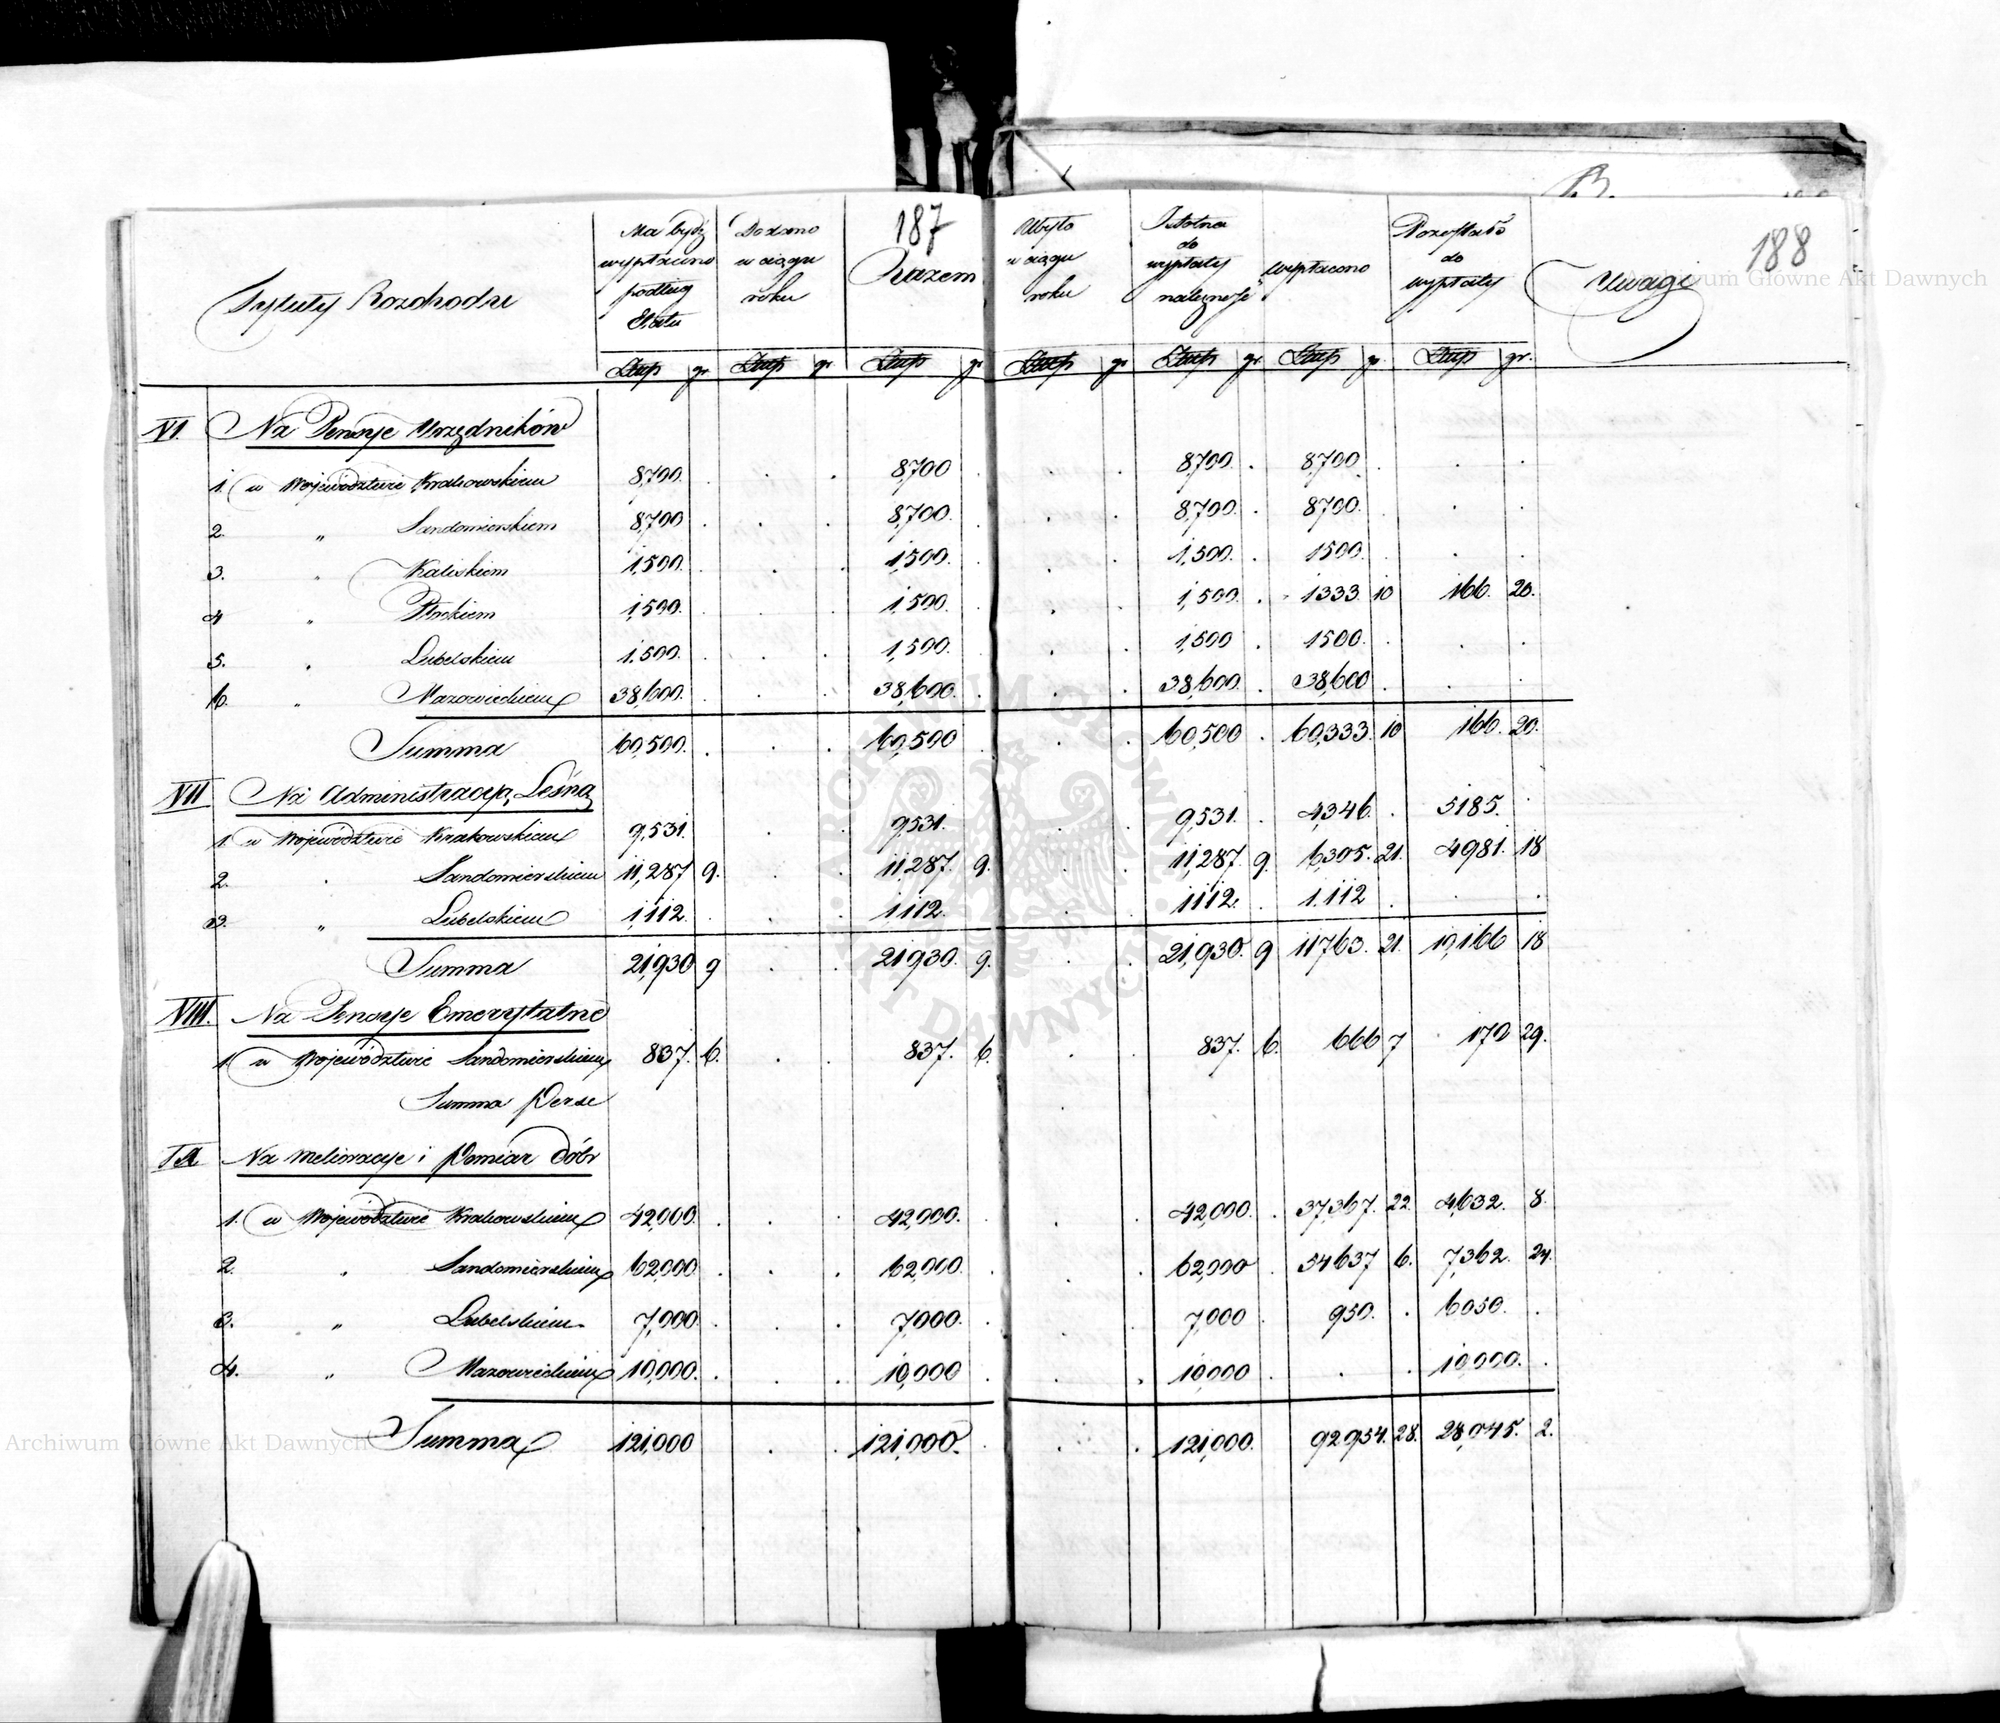 187
188
Tytuły Rozchodu | Ma bydź wypłacono podług Etatu | Dodano w ciągu roku | Razem | Ubyło w ciągu roku | Istotna do wypłaty należność | wypłacono | Pozostało do wypłaty | Uwagi
Złtp gr | Złtp gr | Złtp gr | Złtp gr | Złtp gr | Złtp gr | Złtp gr.
VI. Na Pensye Urzędników
1. w Województwie Krakowskiem 8,700. 8,700 8,700. 8,700.
2. " Sandomierskiem 8,700 8,700. 8,700. 8700.
3. " Kaliskiem 1,500. 1,500 1,500. 1500.
4 " Płockiem 1,500. 1,500. 1,500. 1333 10 166. 20.
5. " Lubelskiem 1.500. 1,500. 1,500 1500.
6. " Mazowieckiem 38,600. 38,600. 38,600. 38,600
Summa 60,500. 60,500 60,500 60,333. 10 166. 20.
VII Na Administracyą Leśną
1. w Województwie Krakowskiem 9,531. 9,531. 9,531. 4,346. 5185.
2. " Sandomierskiem 11,287 9. 11,287. 9. 11,287. 9. 6,305. 21. 4981. 18
3. " Lubelskiem 1,112. 1,112. 1112. 1.112
Summa 21,930 9 21,930. 9. 21,930. 9 11763. 21. 10,166 18
VIII. Na Pensye Emerytalne
1. w Województwie Sandomierskiem 837. 6. 837. 6. 837. 6. 666 7 170 29.
Summa Perse
IX Na melioracye i Pomiar dóbr
1. w Województwie Krakowskiem 42,000. 42,000. 42,000. 37,367. 22. 4,632. 8.
2. " Sandomierskiem 62,000 62,000. 62,000 54637 6. 7,362. 24.
3. " Lubelskiem 7,000. 7,000. 7,000 950. 6050.
4. " Mazowieckiem 10,000. 10,000 10,000 10,000.
Summa 121,000 121,000. 121,000. 92954. 28. 28,045. 2.
Archiwum Główne Akt Dawnych
Archiwum Główne Akt Dawnych
ARCHIWUM GŁÓWNE AKT DAWNYCH